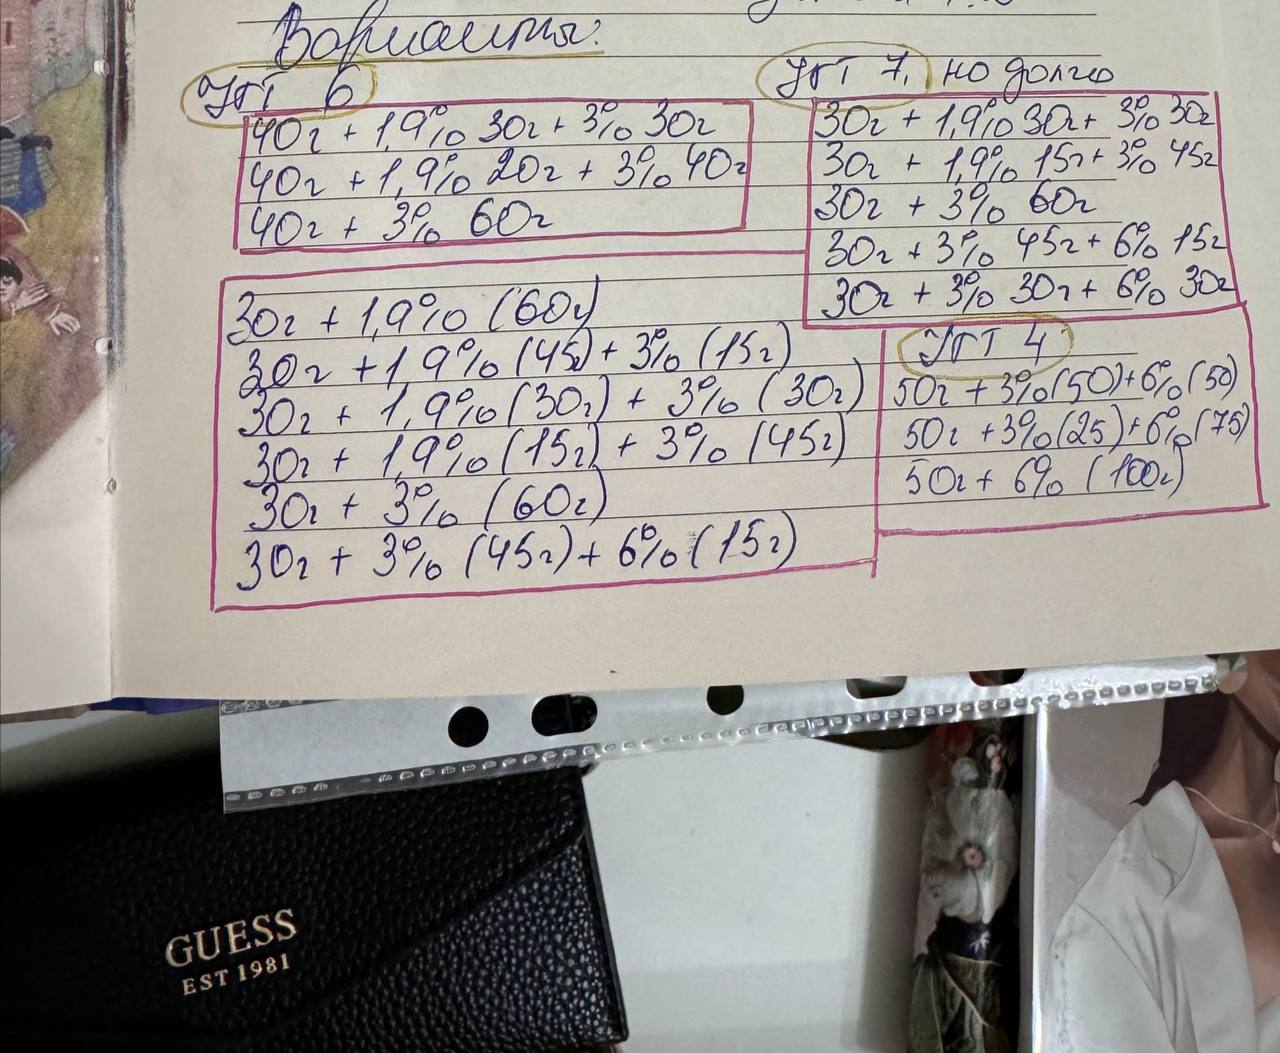 Варианты:
УГТ 6
40г + 1,9% 30г + 3% 30г
40г + 1,9% 20г + 3% 40г
40г + 3% 60г
УГТ 7, но долго
30г + 1,9% 30г + 3% 30г
30г + 1,9% 15г + 3% 45г
30г + 3% 60г
30г + 3% 45г + 6% 15г
30г + 3% 30г + 6% 30г
30г + 1,9% (60г)
30г + 1,9% (45г) + 3% (15г)
30г + 1,9% (30г) + 3% (30г)
30г + 1,9% (15г) + 3% (45г)
30г + 3% (60г)
30г + 3% (45г) + 6% (15г)
УГТ 4
50г + 3% (50) + 6% (50)
50г + 3% (25) + 6% (75)
50г + 6% (100г)
GUESS
EST 1981